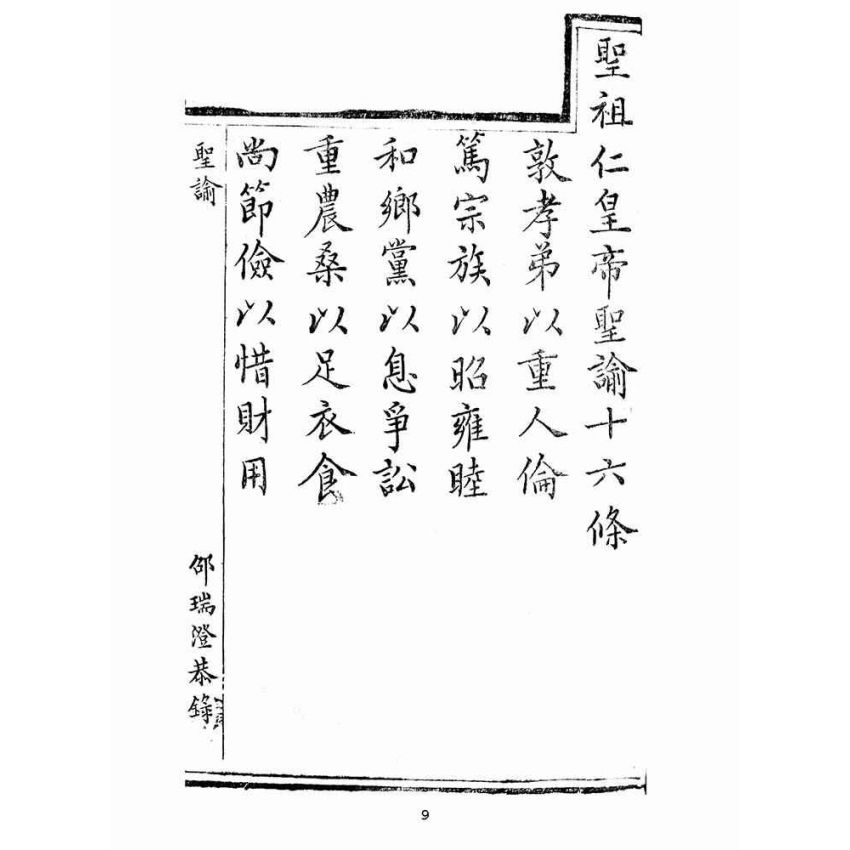 聖祖仁皇帝聖諭十六條
敦孝弟以重人倫
篤宗族以昭雍睦
和鄉黨以息爭訟
重農桑以足衣食
尚節儉以惜財用
聖諭
邵瑞澄恭錄
9